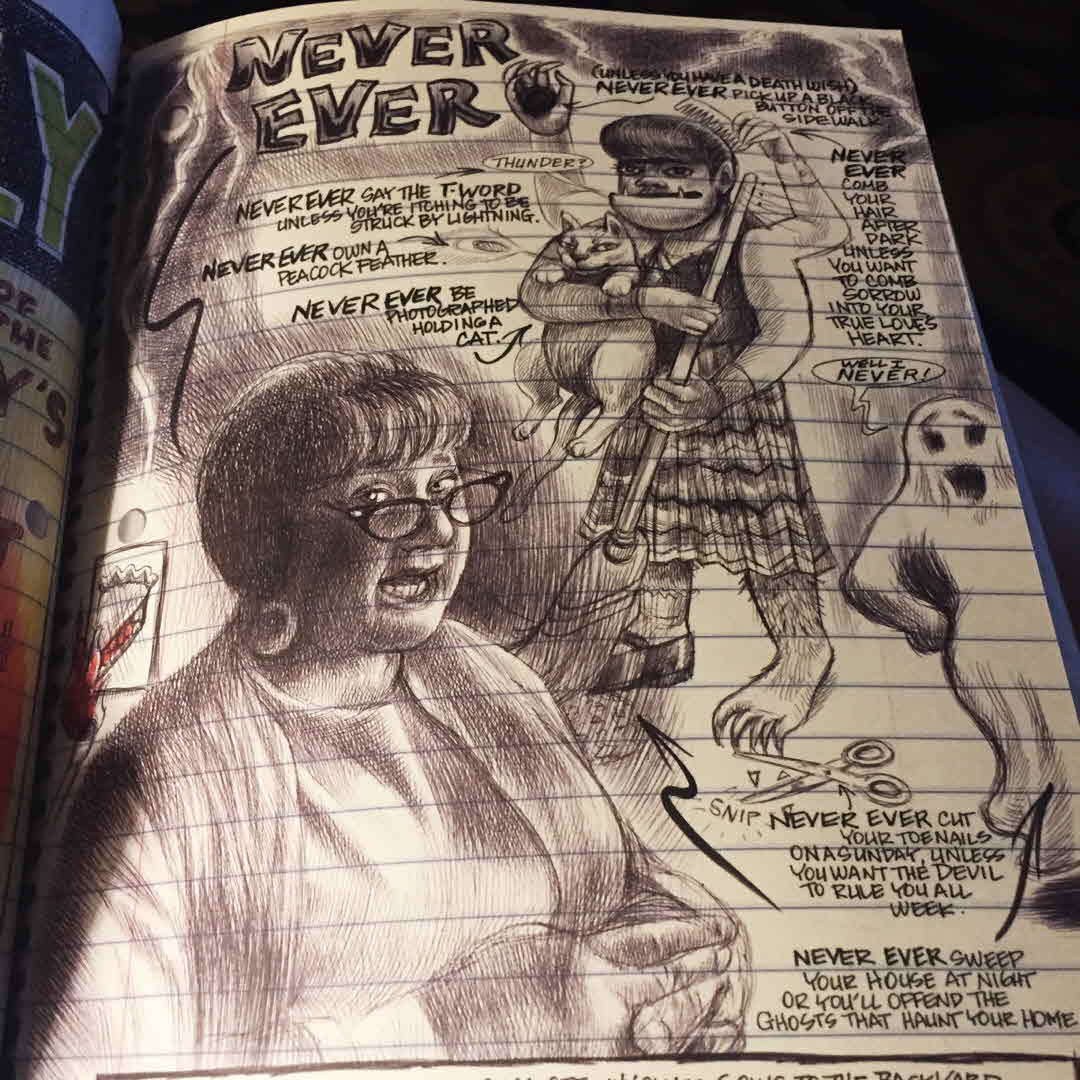 NEVER
EVER
(UNLESS YOU HAVE A DEATH WISH)
NEVER EVER PICK UP A BLACK
BUTTON OFF THE
SIDEWALK.
THUNDER?
NEVER EVER SAY THE T-WORD
UNLESS YOU'RE ITCHING TO BE
STRUCK BY LIGHTNING.
NEVER EVER OWN A
PEACOCK FEATHER.
NEVER EVER BE
PHOTOGRAPHED
HOLDING A
CAT.
NEVER
EVER
COMB
YOUR
HAIR
AFTER
DARK
UNLESS
YOU WANT
TO COMB
SORROW
INTO YOUR
TRUE LOVE'S
HEART.
WELL I
NEVER!
SNIP
NEVER EVER CUT
YOUR TOENAILS
ON A SUNDAY, UNLESS
YOU WANT THE DEVIL
TO RULE YOU ALL
WEEK.
NEVER EVER SWEEP
YOUR HOUSE AT NIGHT
OR YOU'LL OFFEND THE
GHOSTS THAT HAUNT YOUR HOME
LY
OF
THE
Y'S
TO THE BACKYARD